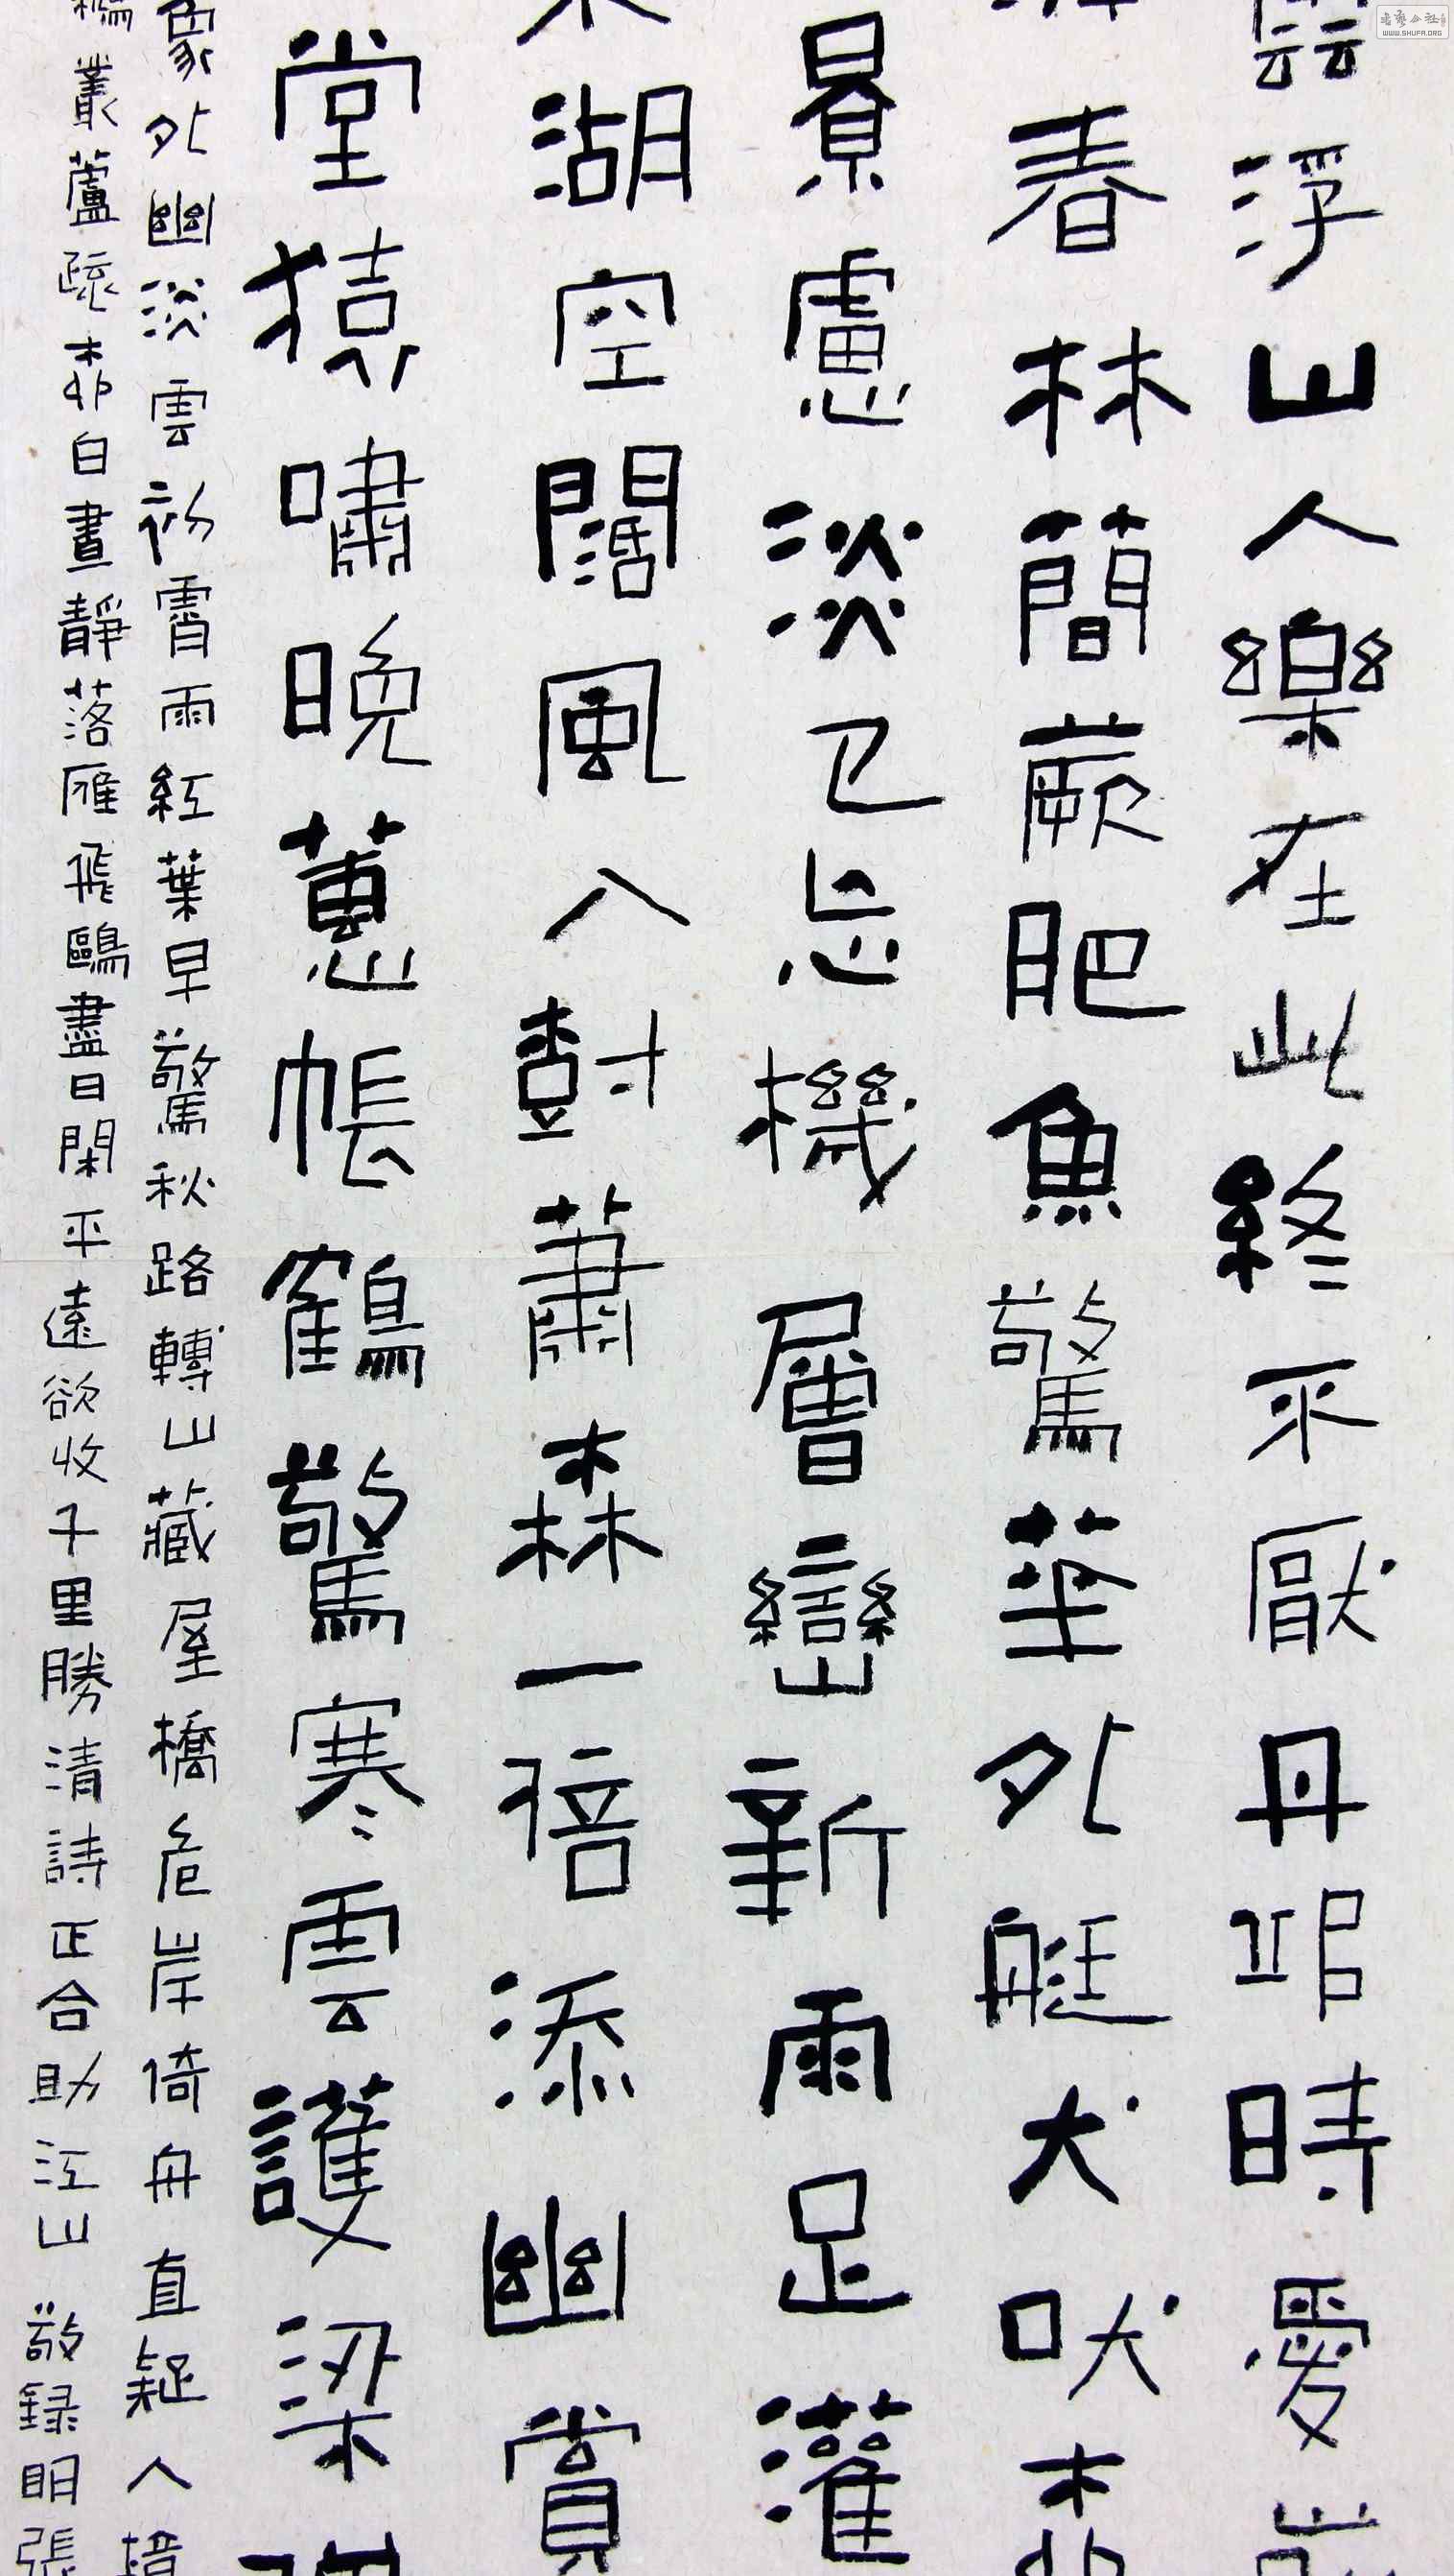 雲浮山人樂在此終不厭丹邱時愛
春林簡蕨肥魚驚華外艇犬吠
景慮淡已忘機層巒新雨足灌
湖空闊風入樹蕭森一倍添幽賞
堂猿嘯晚蕙帳鶴驚寒雲護梁
象外幽淡雲初霄雨紅葉早驚秋路轉山藏屋橋危岸倚舟直疑人境
叢蘆疏柳白晝靜落雁飛鷗盡日閑平遠欲收千里勝清詩正合助江山 敬録明張
WWW.SHUFA.ORG